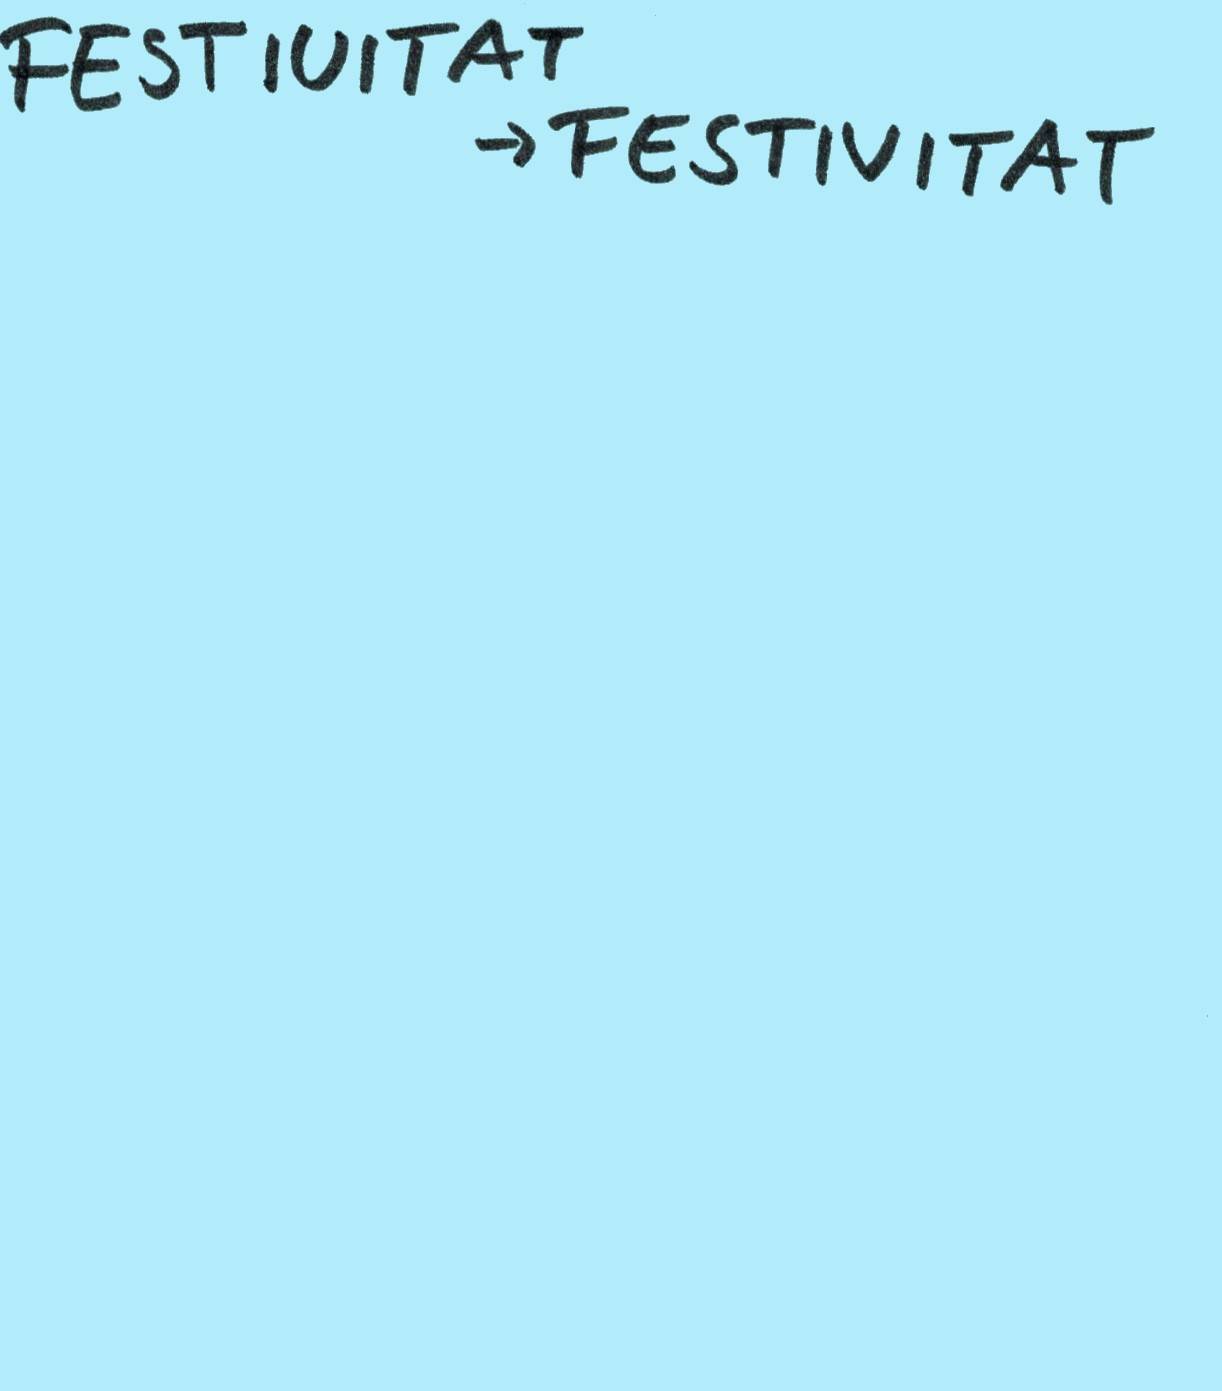 FESTIUITAT
→FESTIVITAT